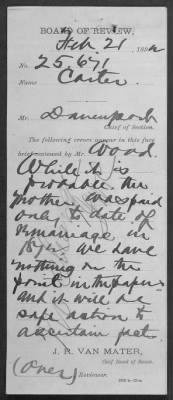 BOARD OF REVIEW.
Feb. 21 189
No. 25,671
Name Carter
Mr. Davenport
Chief of Section.
The following errors occur in this face
brief reviewed by Mr. Wood.
While it is
probable the
mother was paid
only to date of
remarriage in
we have
nothing on the
point in the papers
and it will be
safe action to
ascertain fact.
J. R. VAN MATER,
Chief Board of Review.
(Over)
Reviewer.